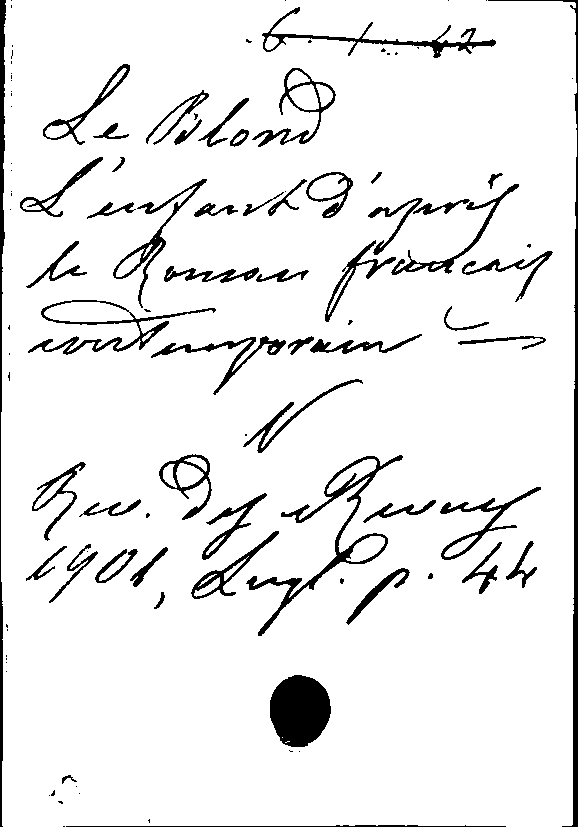 6. 1. 42
Le Blond
L'enfant d'après
le Roman français
contemporain
N
Rev. des Revues
1901, Lugl. p. 44